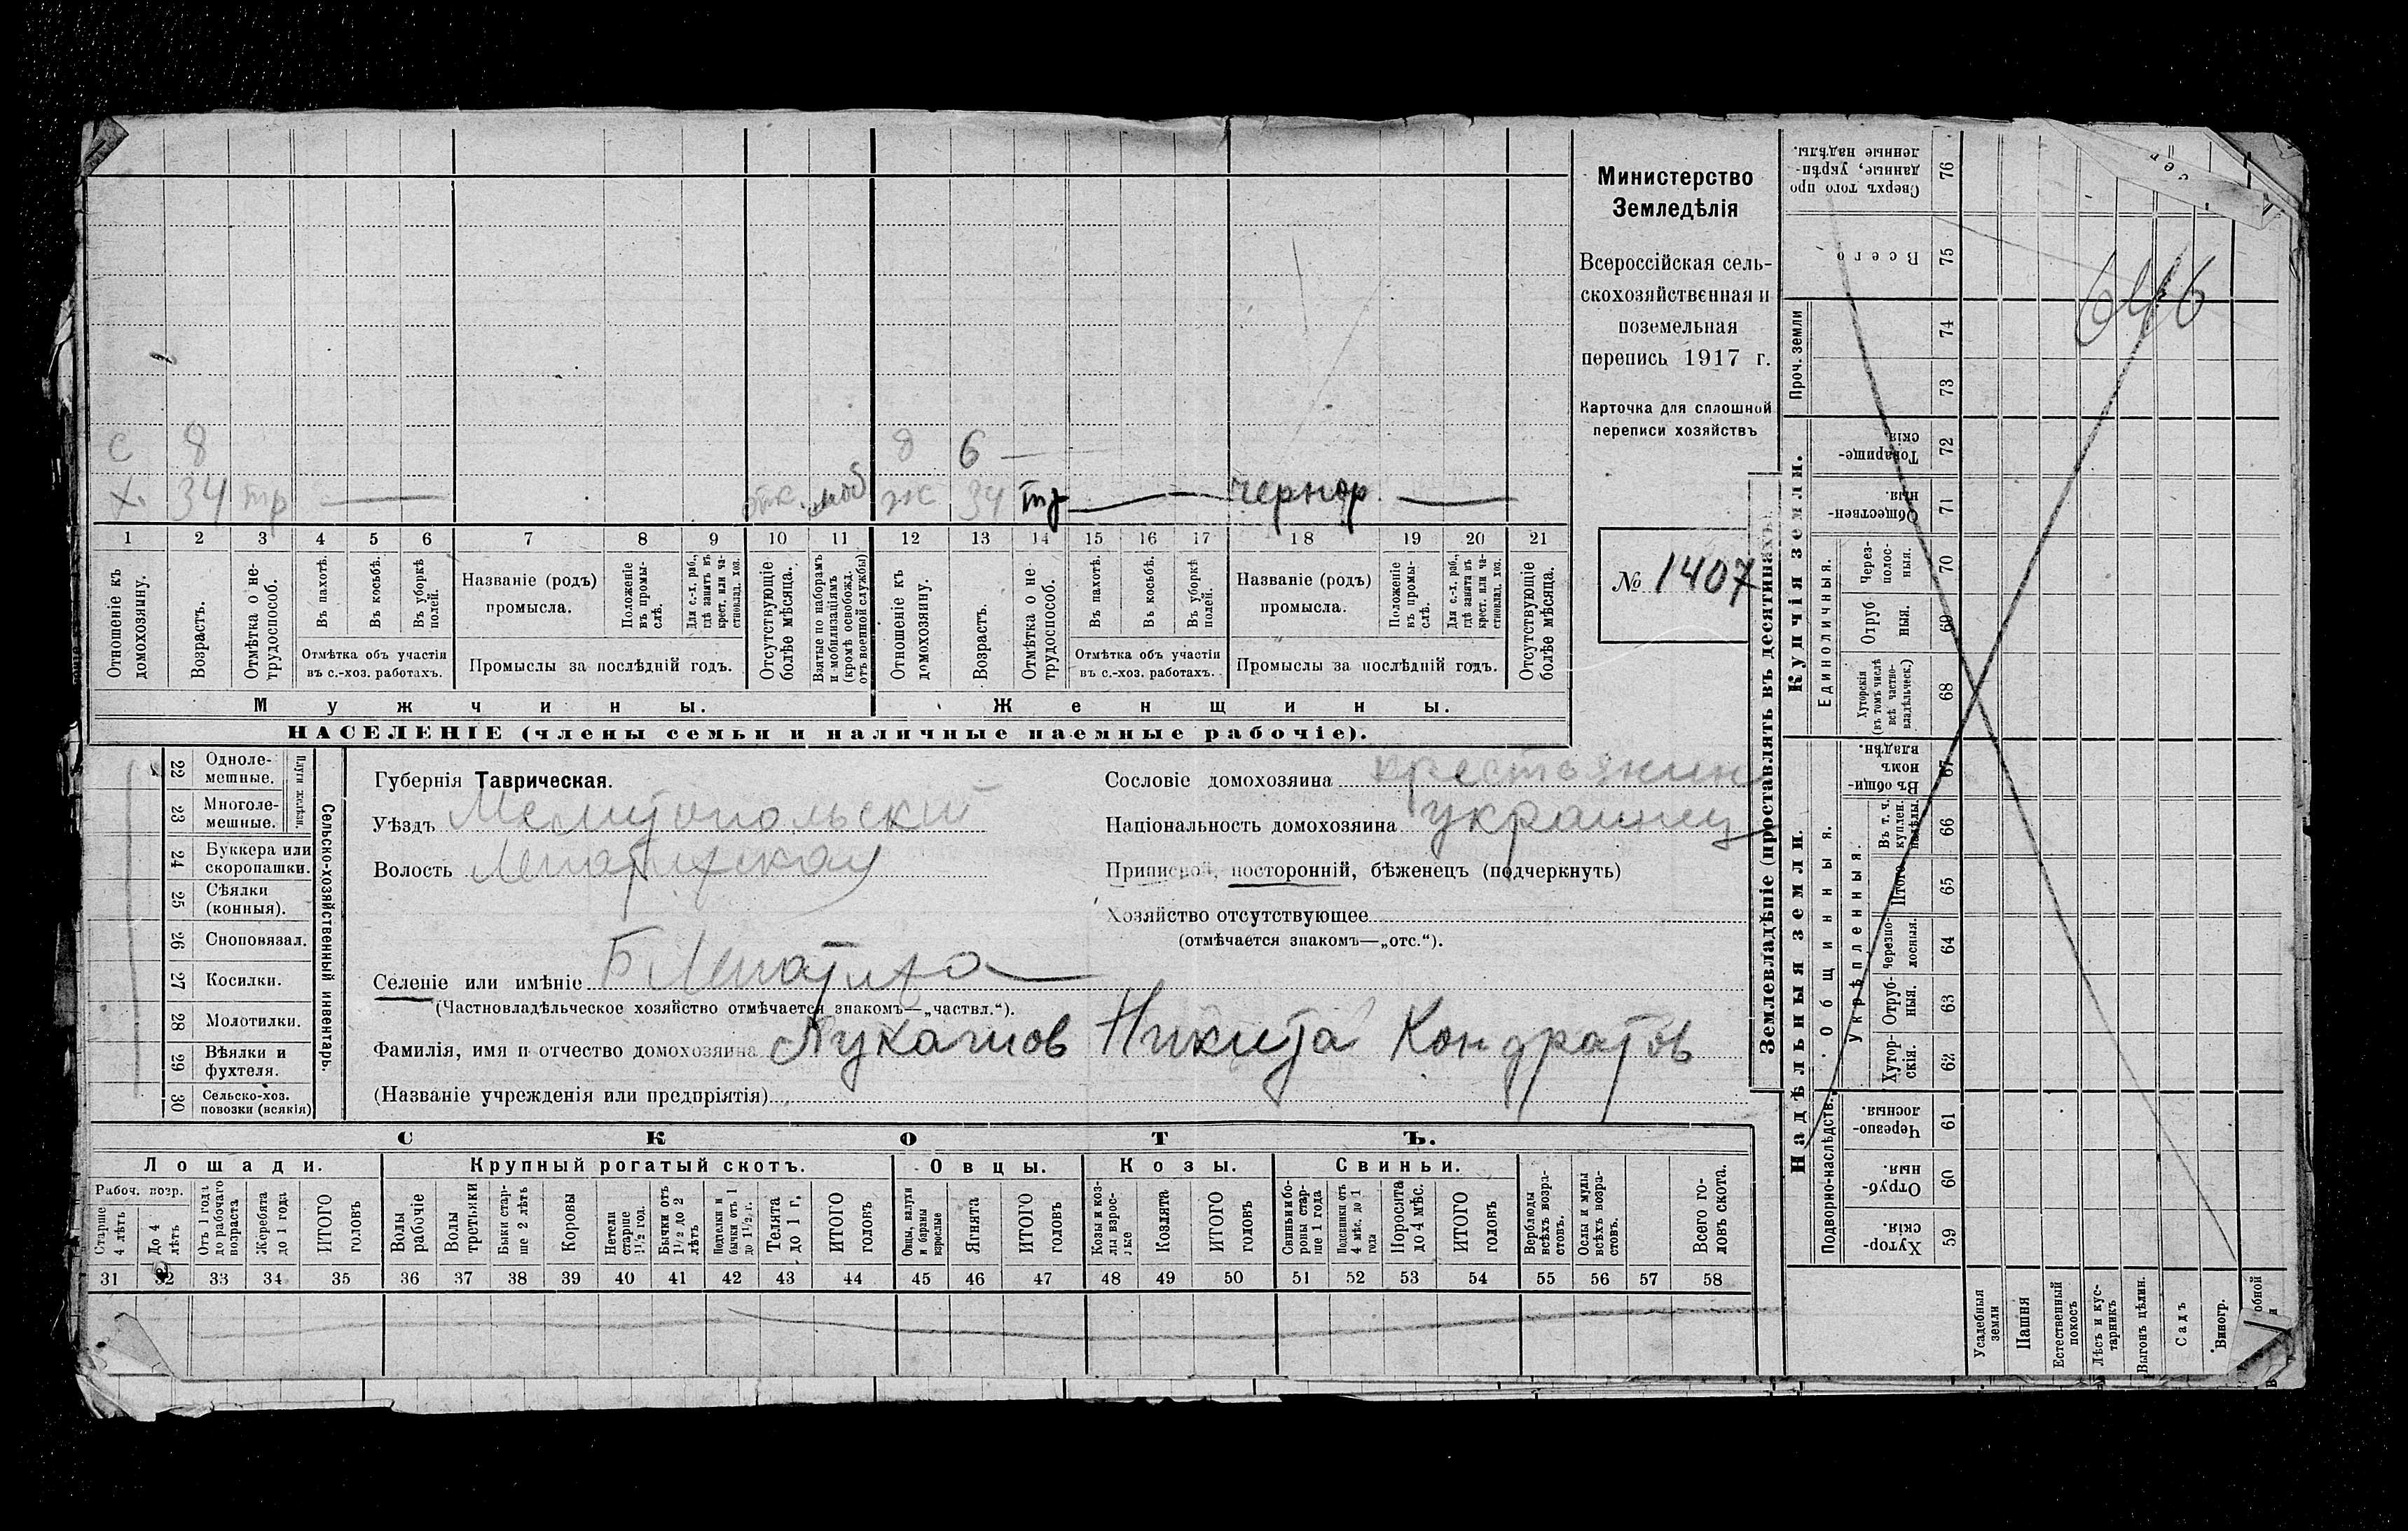 с 8 6
х. 34 тр отк. моб ж 34 тр чернор.
1 2 3 4 5 6 7 8 9 10 11 12 13 14 15 16 17 18 19 20 21
Отношеніе къ домохозяину.
Возрастъ.
Отмѣтка о нетрудоспособ.
Въ пахотѣ.
Въ косьбѣ.
Въ уборкѣ полей.
Отмѣтка объ участіи
въ с.-хоз. работахъ.
Названіе (родъ)
промысла.
Положеніе въ промыслѣ.
Для с.-х. раб., гдѣ занятъ въ крест. или частновлад. хоз.
Промыслы за послѣдній годъ.
Отсутствующіе болѣе мѣсяца.
Взятые по наборамъ и мобилизаціямъ (кромѣ освобожд. отъ военной службы)
Отношеніе къ домохозяину.
Возрастъ.
Отмѣтка о нетрудоспособ.
Въ пахотѣ.
Въ косьбѣ.
Въ уборкѣ полей.
Отмѣтка объ участіи
въ с.-хоз. работахъ.
Названіе (родъ)
промысла.
Положеніе въ промыслѣ.
Для с.-х. раб., гдѣ занята въ крест. или частновлад. хоз.
Промыслы за послѣдній годъ.
Отсутствующіе болѣе мѣсяца.
Мужчины. Женщины.
НАСЕЛЕНІЕ (члены семьи и наличные наемные рабочіе).
Министерство
Земледѣлія
Всероссійская сель-
скохозяйственная и
поземельная
перепись 1917 г.
Карточка для сплошной
переписи хозяйствъ
№ 1407
22 Одноле-
мешные.
23 Многоле-
мешные.
Плуги желѣзн.
24 Буккера или
скоропашки.
25 Сѣялки
(конныя).
26 Сноповязал.
27 Косилки.
28 Молотилки.
29 Вѣялки и
фухтеля.
30 Сельско-хоз.
повозки (всякія)
Сельско-хозяйственный инвентарь.
Губернія Таврическая.
Уѣздъ Мелитопольский
Волость
Селеніе или имѣніе Б
(Частновладѣльческое хозяйство отмѣчается знакомъ—„частвл.“).
Фамилія, имя и отчество домохозяина Лукашов Никита Кондратов
(Названіе учрежденія или предпріятія)
Сословіе домохозяина крестьянин
Національность домохозяина украинец
Приписной, посторонній, бѣженецъ (подчеркнуть)
Хозяйство отсутствующее
(отмѣчается знакомъ—„отс.“).
СКОТЪ.
Лошади. Крупный рогатый скотъ. Овцы. Козы. Свиньи.
Рабоч. возр.
Старше 4 лѣтъ
До 4 лѣтъ
Отъ 1 года до рабочаго возраста
Жеребята до 1 года
ИТОГО головъ
Волы рабочіе
Волы третьяки
Быки старше 2 лѣтъ
Коровы
Нетели старше 1½ год.
Бычки отъ 1½ до 2 лѣтъ
Подтелки и бычки отъ 1 до 1½ г.
Телята до 1 г.
ИТОГО головъ
Овцы, валухи и бараны взрослые
Ягнята
ИТОГО головъ
Козы и козлы взрослые
Козлята
ИТОГО головъ
Свиньи и боровы старше 1 года
Подсвинки отъ 4 мѣс. до 1 года
Поросята до 4 мѣс.
ИТОГО головъ
Верблюды всѣхъ возрастовъ.
Ослы и мулы всѣхъ возрастовъ.
Всего головъ скота.
31 32 33 34 35 36 37 38 39 40 41 42 43 44 45 46 47 48 49 50 51 52 53 54 55 56 57 58
Землевладѣніе (проставлять въ десятинахъ).
Надѣльныя земли. Купчія земли. Проч. земли
Подворно-наслѣдств. Общинныя. Единоличныя.
Укрѣпленныя.
Хутор-
скія. 59
Отруб-
ныя. 60
Черезпо-
лосныя. 61
Хутор-
скія. 62
Отруб-
ныя. 63
Черезпо-
лосныя. 64
Итого 65
Въ т. ч. куплен. надѣлы. 66
Въ общинномъ владѣн. 67
Хуторскія (въ томъ числѣ всѣ частновладѣльческ.) 68
Отрубныя. 69
Черезполосныя. 70
Обществен-
ныя. 71
Товарище-
скія 72
73
74
Всего 75
Сверхъ того проданные, укрѣпленные надѣлы. 76
646
Усадебныя земли
Пашня
Естественный покосъ
Лѣсъ и кустарникъ
Выгонъ цѣлин.
Садъ
Виногр.